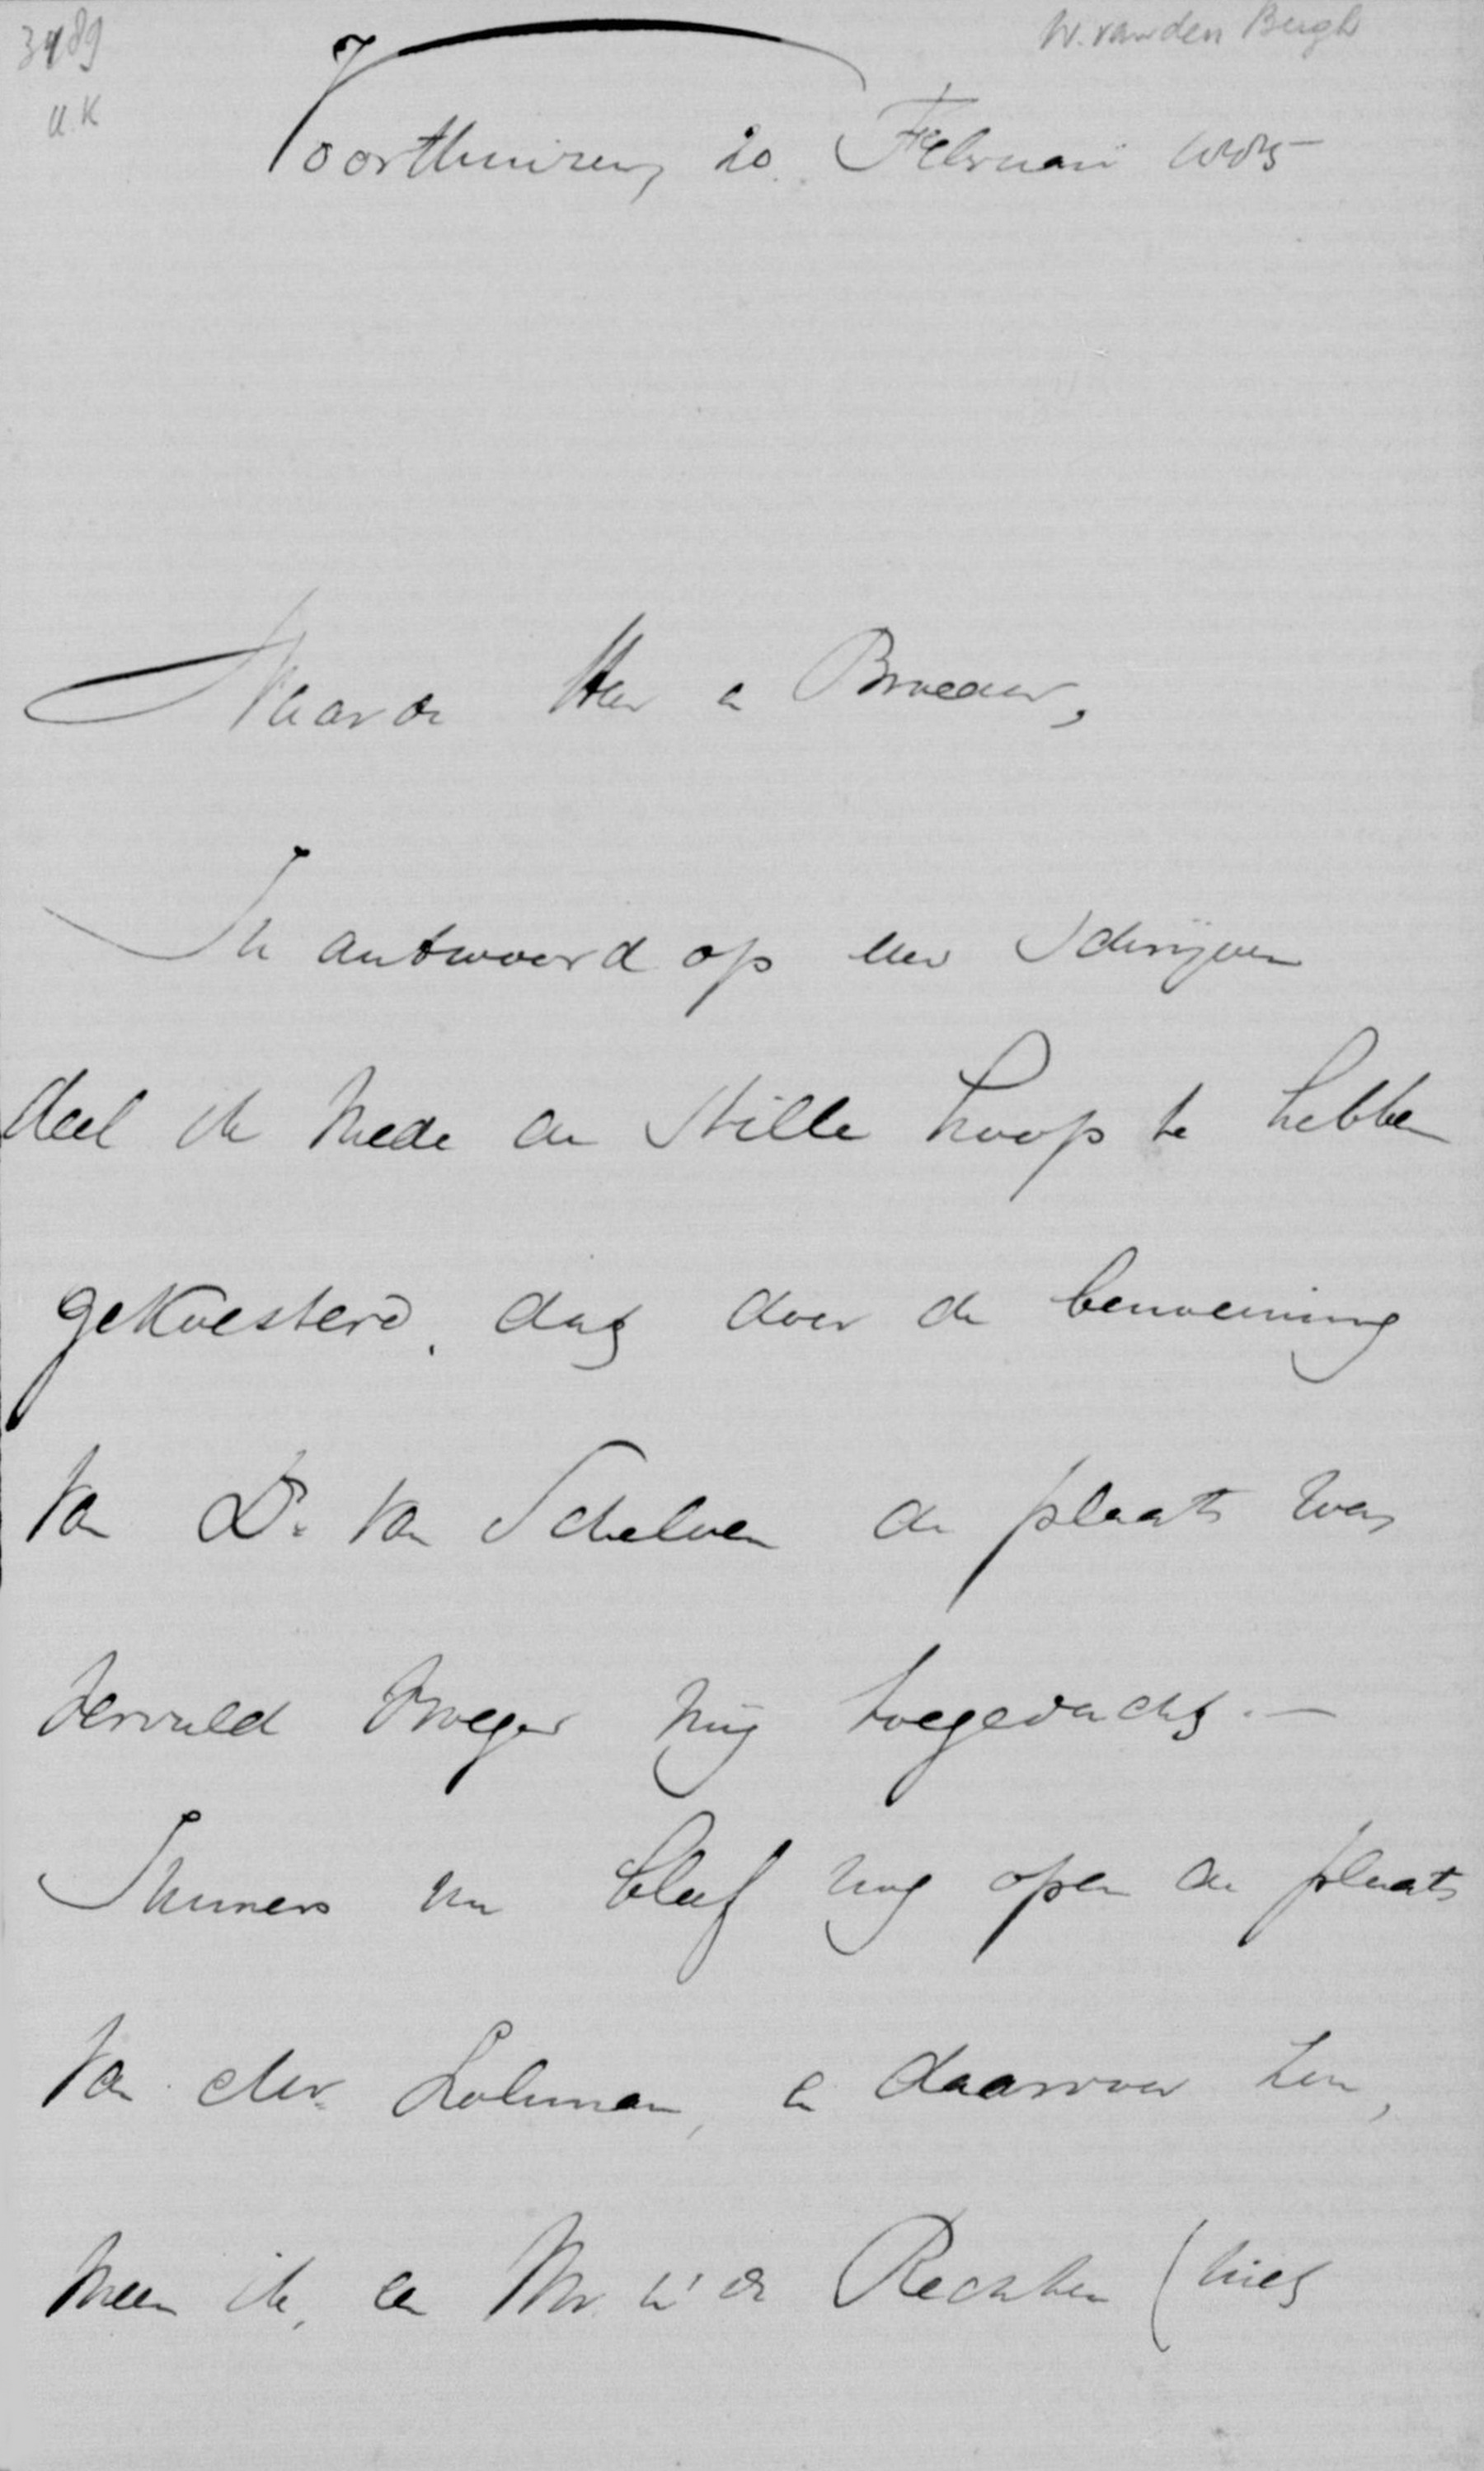 3489
W. van den Bergh
U.K
Voorthuizen, 20 Februari 1885
Waarde Heer en Broeder,
In antwoord op uw schrijven
deel ik mede de stille hoop te hebben
gekoesterd, dat door de benoeming
van Ds. van Schelven de plaats was
vervuld vroeger mij toegedacht. —
Immers nu bleef nog open de plaats
van Mr. Lohman, en daarvoor kon,
meen ik, een Mr. in de Rechten (niet